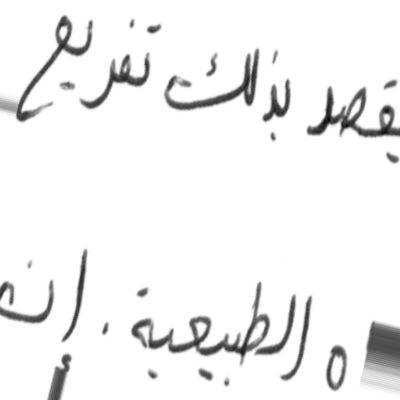 يقصد بذلك تفريغ
ه الطبيعية . إن